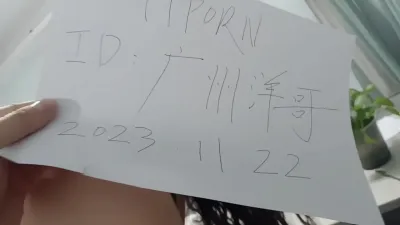 TTPORN
ID:广州洋哥
2023 11 22